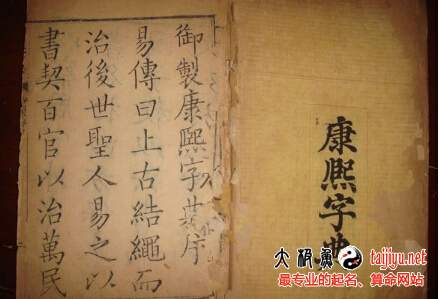 康熙字典
御製康熙字典序
易傳曰上古結繩而
治後世聖人易之以
書契百官以治萬民
taijiyu.net
最专业的起名、算命网站